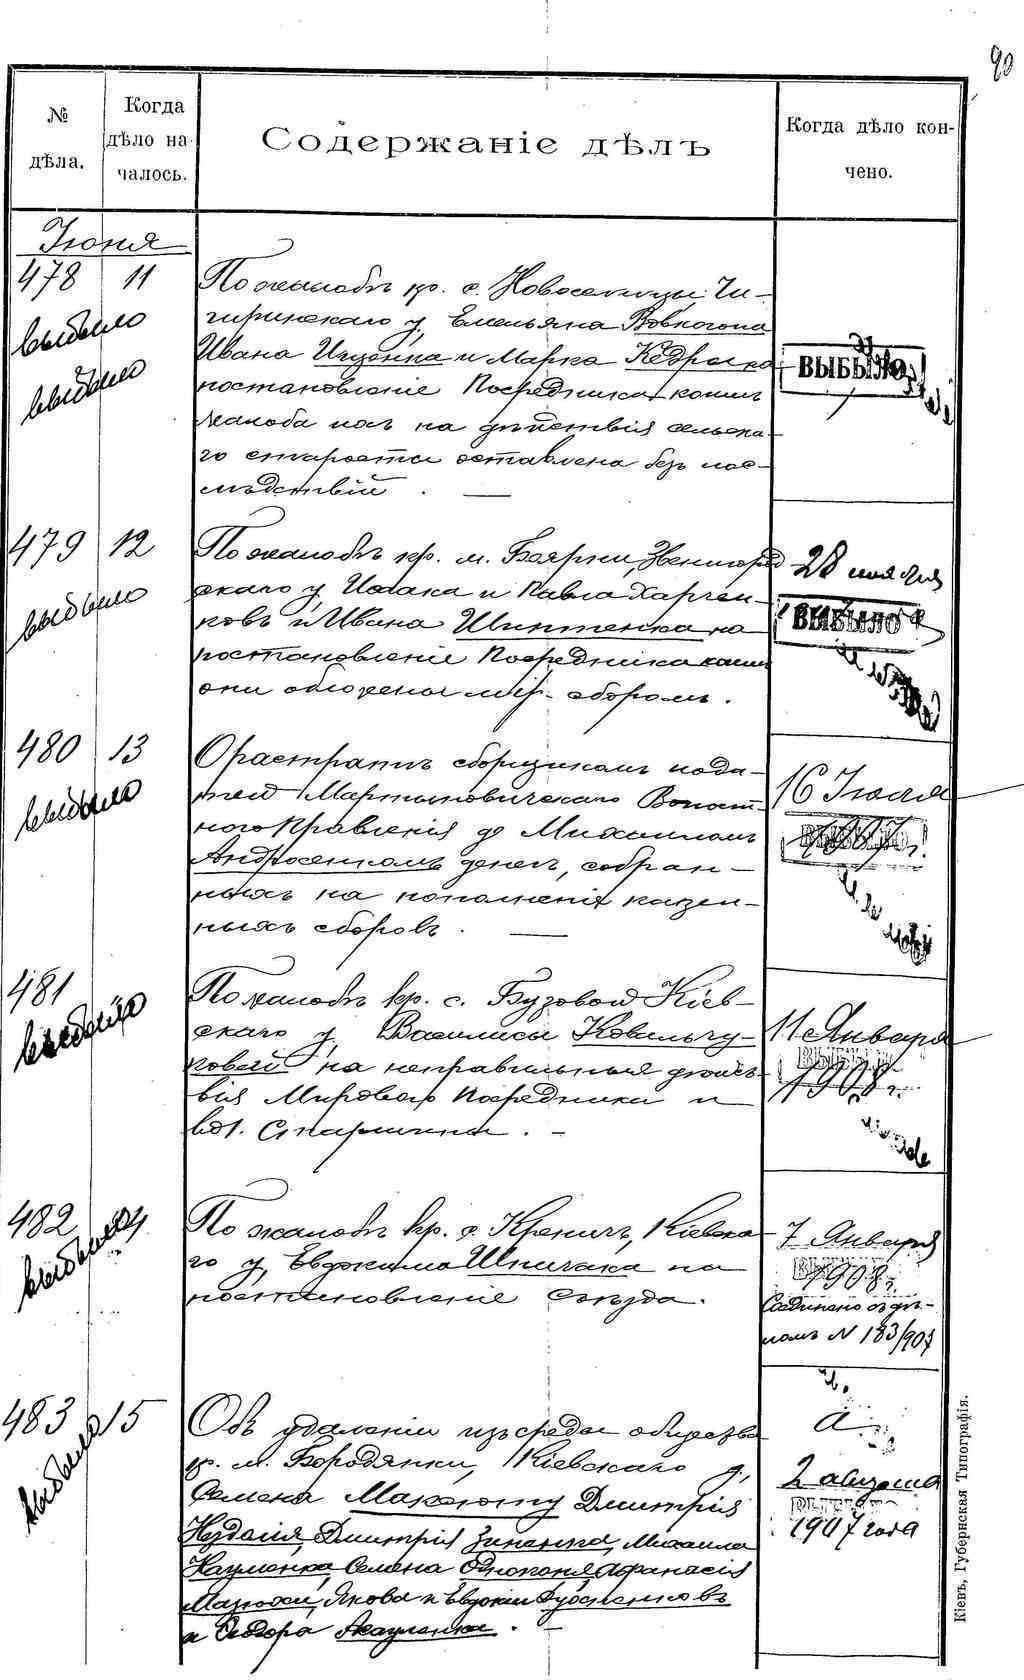 90
№ дѣла.
Когда дѣло началось.
Содержаніе дѣлъ
Когда дѣло кончено.
Іюня
478 11
выбыло
выбыло
По жалобѣ кр. с. Новоселицы Чи-
гиринскаго у. Емельяна Вовкогона
Ивана Ищенка и Марка Кедры на
постановленіе Посредника коимъ
жалоба ихъ на дѣйствія сельска-
го старосты оставлена безъ пос-
лѣдствій. —
ВЫБЫЛО
479 12
выбыло
По жалобѣ кр. м. Боярки, Звенигород
скаго у. Исака и Павла Харчен-
ковъ и Ивана Шпитенка на
постановленіе Посредника коимъ
они обложены мір. сборомъ.
28 ноября
ВЫБЫЛО
480 13
выбыло
О растратѣ сборщикомъ пода-
тей Мартыновичскаго Волост-
ного Правленія Михаиломъ
Андросенкомъ денегъ, собран-
ныхъ на пополненія казен-
ныхъ сборовъ. —
16 Іюля
1907 г.
ВЫБЫЛО
481
выбыло
По жалобѣ кр. с. Бузовой Кіев-
скаго у. Василисы Ковальчу-
ковой на неправильныя дѣйст-
вія Мирового Посредника и
11 Января
ВЫБЫЛО
1908 г.
482 14
выбыло
По жалобѣ кр. с. Креничъ, Кіевска-
го у. Евдокима Шпичака на
постановленіе съѣзда.
7 Января
1908 г.
Соединено съ дѣ-
ломъ N 183/907
483 15
выбыло
Объ удаленіи изъ среды общества
кр. м. Бородянки, Кіевскаго у.,
Семена Макогону Дмитрія
Дмитрія Зиненка, Михаила
Науменка, Семена Афанасія
Якова и Евдокіи
и Сидора
2 августа
1907 года
Кіевъ, Губернская Типографія.